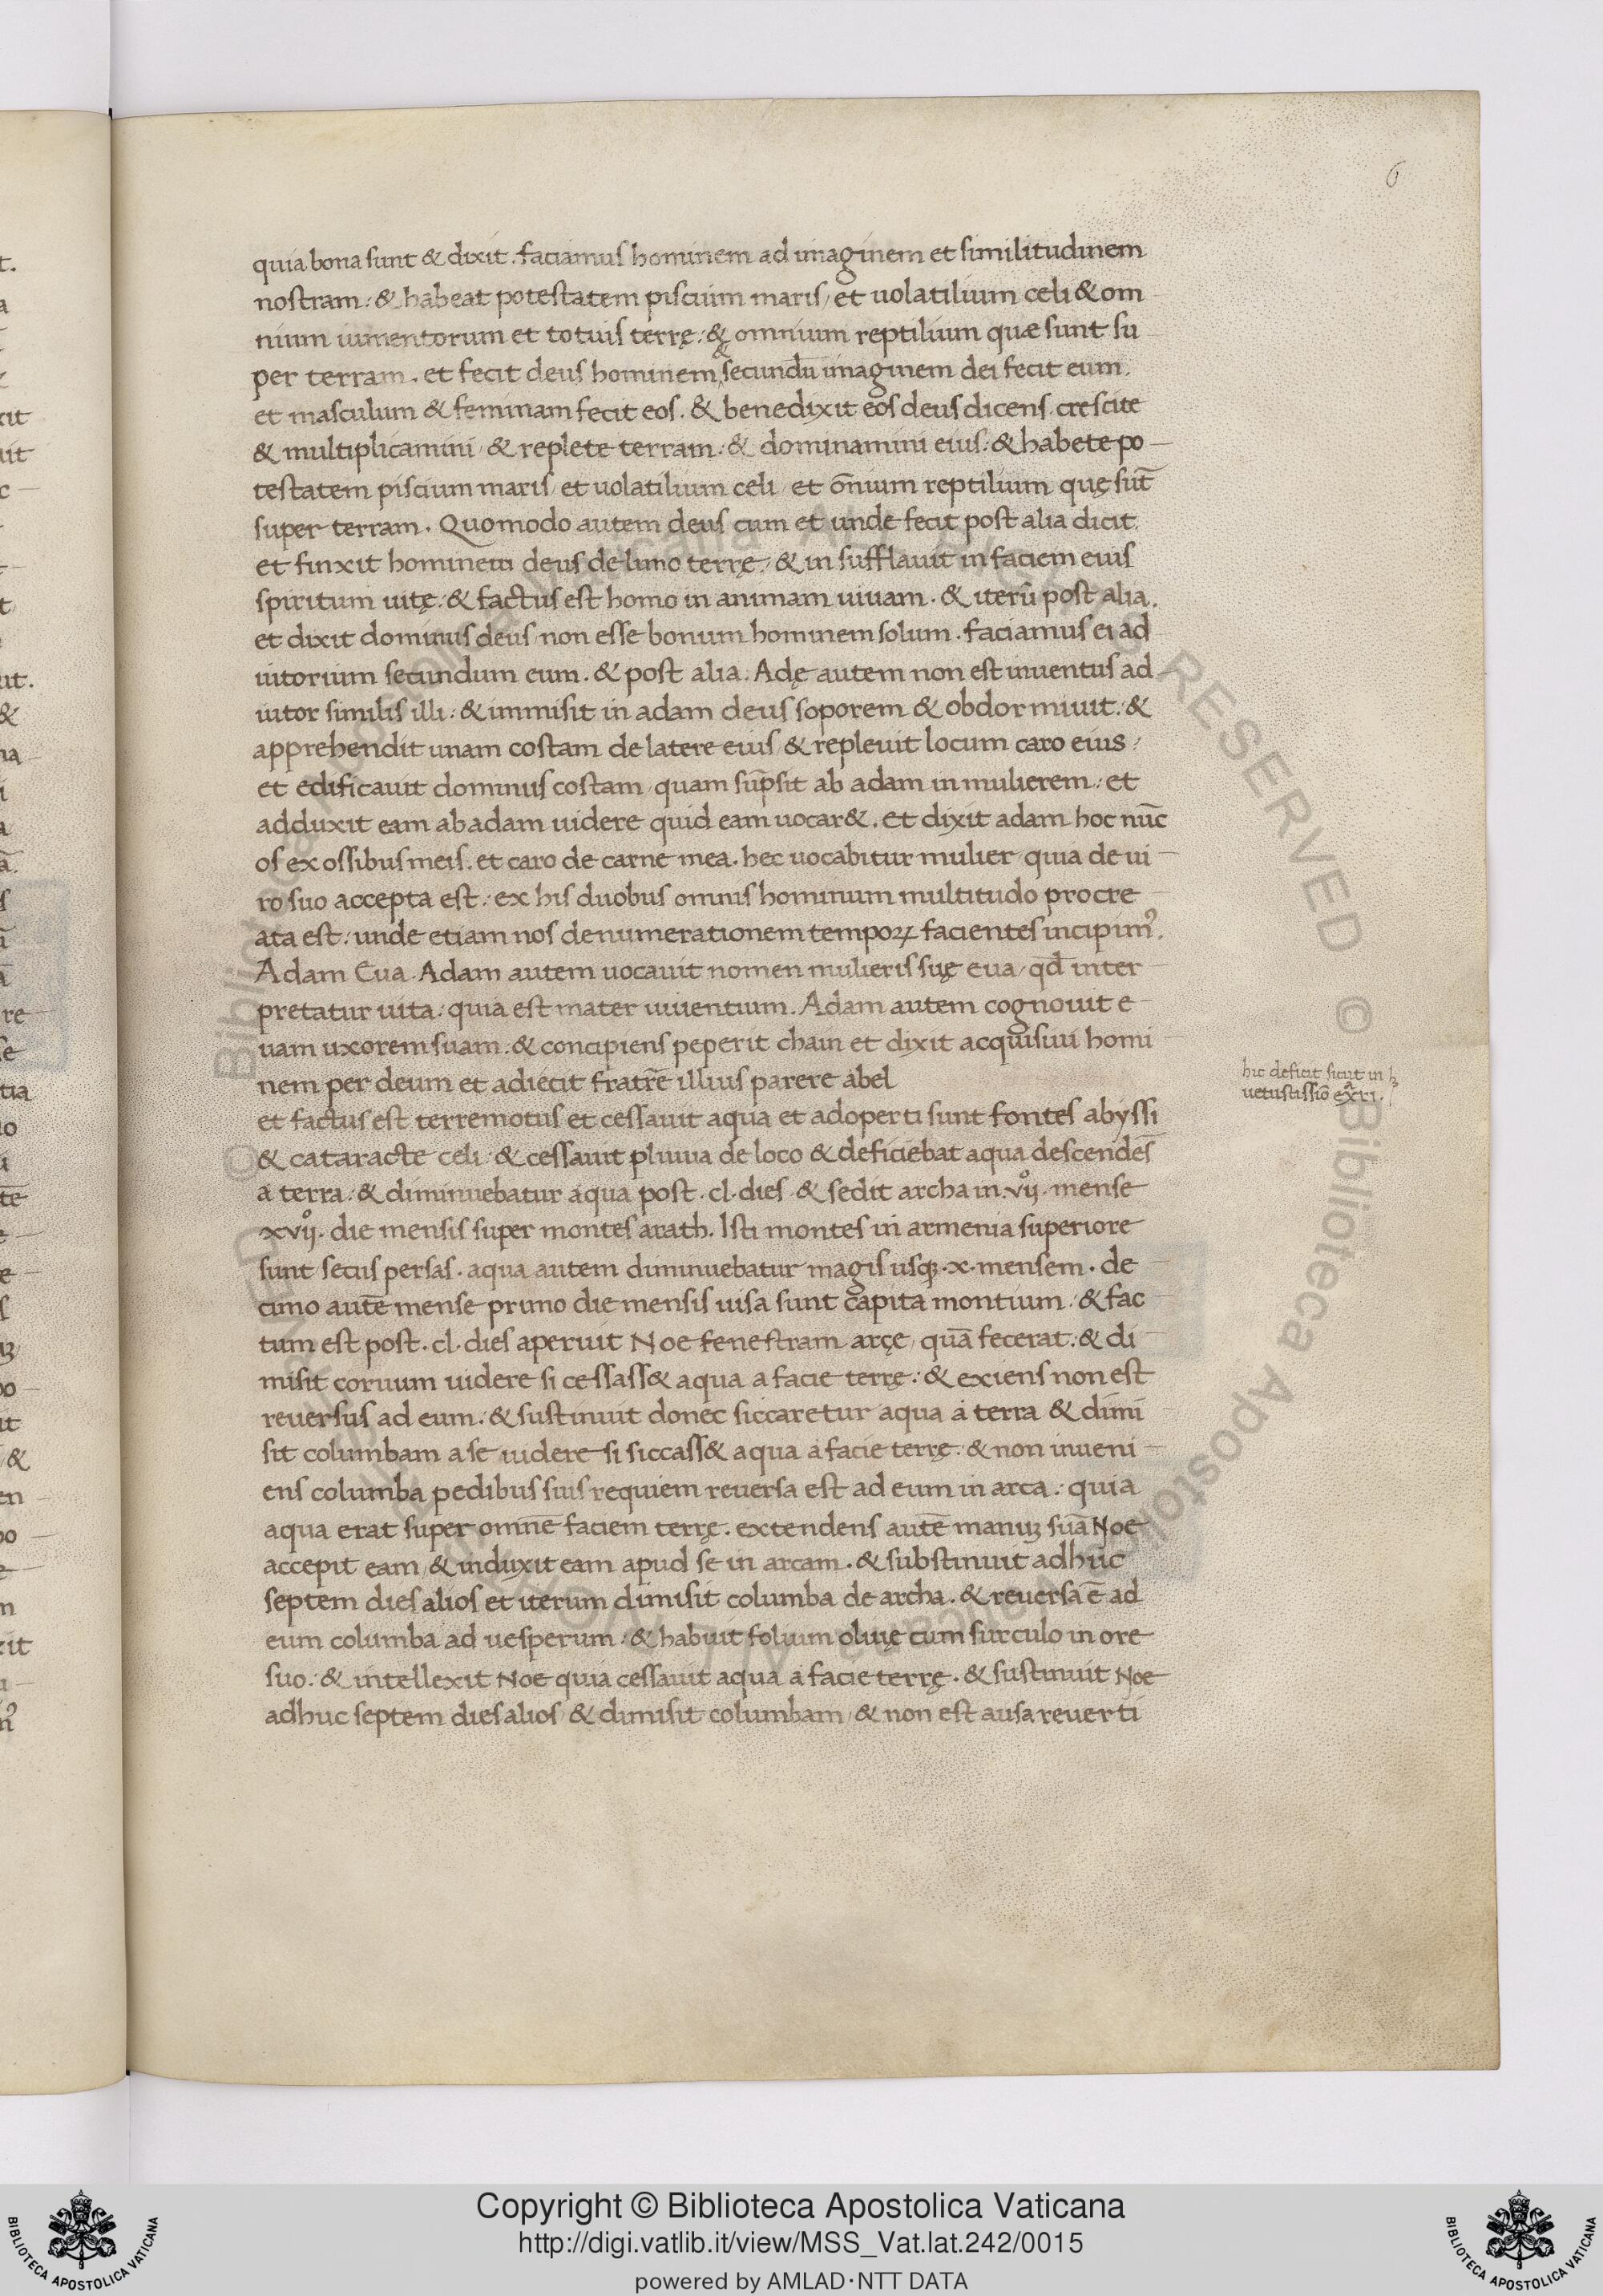 6
quia bona sunt & dixit. faciamus hominem ad imaginem et similitudinem
nostram: & habeat potestatem piscium maris, et uolatilium celi & om
nium iumentorum et totius terrę: & omnium reptilium quæ sunt su
per terram. et fecit deus hominem & secundū imaginem dei fecit eum.
et masculum & feminam fecit eos. & benedixit eos deus dicens. crescite
& multiplicamini, & replete terram: & dominamini eius: & habete po
testatem piscium maris, et uolatilium celi, et ōnium reptilium quę sūt
super terram. Quomodo autem deus cum et unde fecit post alia dicit.
et finxit hominem deus de limo terrę: & in sufflauit in faciem eius
spiritum uitę: & factus est homo in animam uiuam. & iterū post alia.
et dixit dominus deus, non esse bonum hominem solum. faciamus ei ad
iutorium secundum eum. & post alia. Adę autem non est inuentus ad
iutor similis illi: & immisit in adam deus soporem & obdormiuit: &
apprehendit unam costam de latere eius, & repleuit locum caro eius:
et edificauit dominus costam, quam sūpsit ab adam in mulierem: et
adduxit eam ab adam uidere quid eam uocar&. et dixit adam hoc nūc
os ex ossibus meis. et caro de carne mea. hec uocabitur mulier, quia de ui
ro suo accepta est: ex his duobus omnis hominum multitudo procre
ata est: unde etiam nos denumerationem tempoꝝ facientes incipimꝰ.
Adam Eua. Adam autem uocauit nomen mulieris suę eua, qd̄ inter
pretatur uita: quia est mater uiuentium. Adam autem cognouit e
uam uxorem suam: & concipiens peperit chain et dixit acquisiui homi
nem per deum et adiecit fratrē illius parere abel
hic deficit sicut in
uetustissiō
et factus est terremotus et cessauit aqua et adoperti sunt fontes abyssi
& cataracte celi: & cessauit pluuia de loco & deficiebat aqua descendēs
a terra: & diminuebatur aqua post. cl. dies. & sedit archa in. vijº. mense
xvijº. die mensis super montes arath. Isti montes in armenia superiore
sunt secus persas. aqua autem diminuebatur magis usqꝫ. x. mensem. de
cimo autē mense primo die mensis uisa sunt capita montium: & fac
tum est post. cl. dies aperuit Noe fenestram arçe, quā fecerat: & di
misit coruum uidere si cessass& aqua a facie terrę: & exiens non est
reuersus ad eum: & sustinuit donec siccaretur aqua a terra & dimi
sit columbam a se uidere si siccass& aqua a facie terrę: & non inueni
ens columba pedibus suis requiem reuersa est ad eum in arca: quia
aqua erat super omnē faciem terrę. extendens autē manuꝫ suā Noe
accepit eam, & induxit eam apud se in arcam. & substinuit adhuc
septem dies alios et iterum dimisit columba de archa. & reuersa ē ad
eum columba ad uesperum: & habuit folium oliuę cum surculo in ore
suo: & intellexit Noe quia cessauit aqua a facie terrę. & sustinuit Noe
adhuc septem dies alios, & dimisit columbam, & non est ausa reuerti
Copyright © Biblioteca Apostolica Vaticana
http://digi.vatlib.it/view/MSS_Vat.lat.242/0015
powered by AMLAD·NTT DATA
BIBLIOTECA APOSTOLICA VATICANA
BIBLIOTECA APOSTOLICA VATICANA